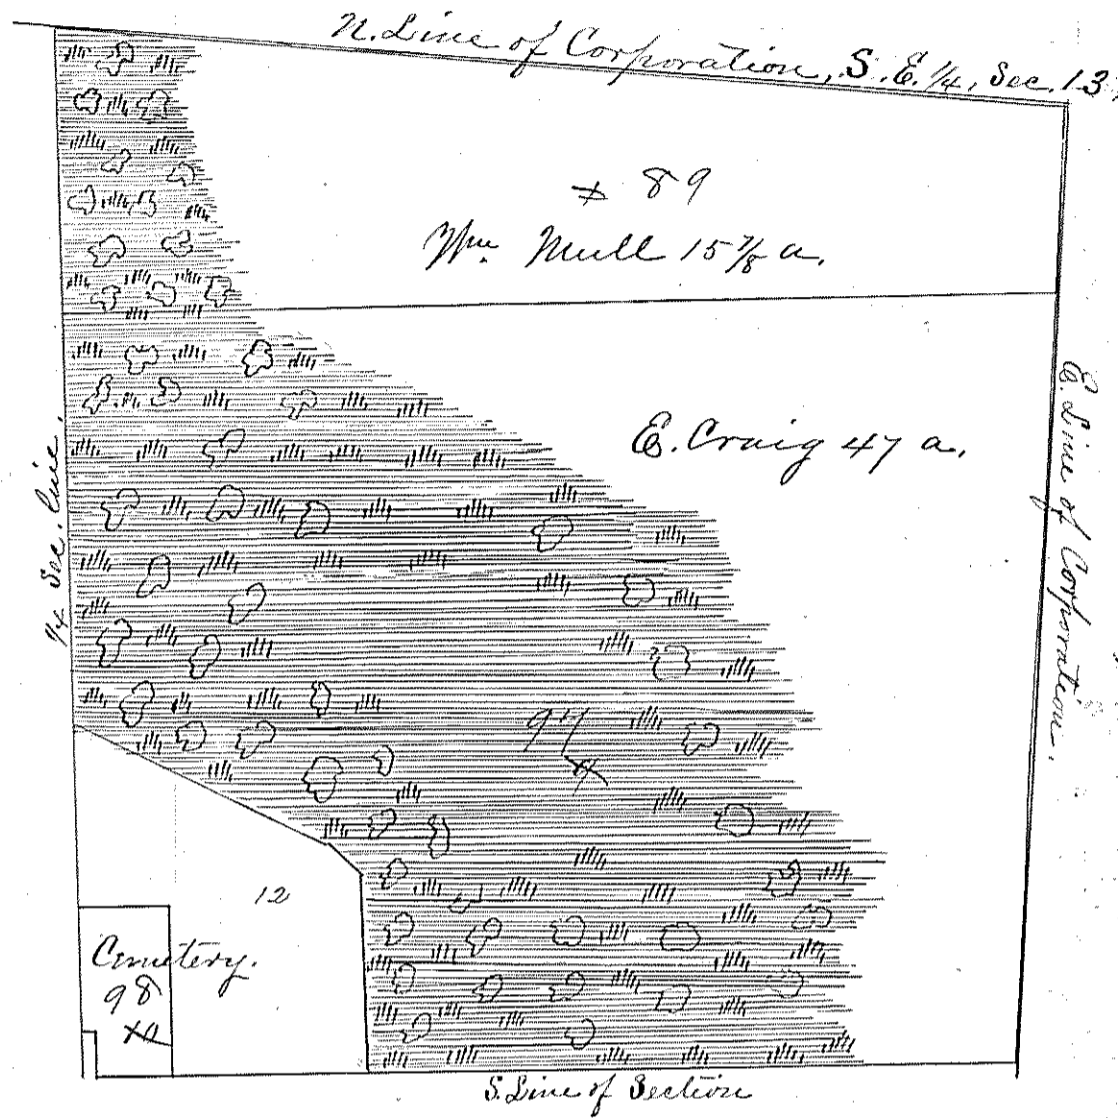 N. Line of Corporation, S. E. 1/4, Sec. 13,
x 89
Wm. Mull 15 7/8 a.
E. Craig 47 a.
E Line of Corporation.
1/4 Sec. line.
97
x
12
Cemetery.
98
S. Line of Section